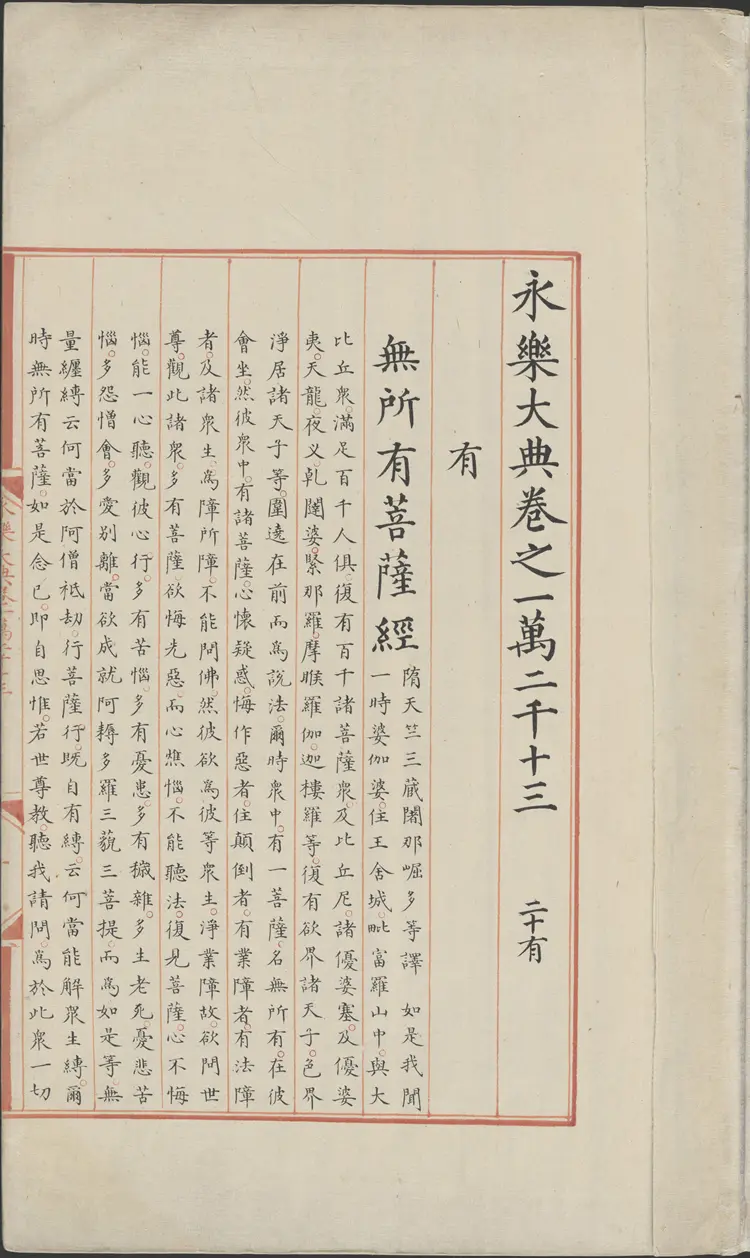 永樂大典卷之一萬二千十三 二十有
有
無所有菩薩經
隋天竺三藏闍那崛多等譯 如是我聞
一時婆伽婆。住王舍城。毗富羅山中。與大
比丘衆。滿足百千人俱。復有百千諸菩薩衆。及比丘尼。諸優婆塞。及優婆
夷。天龍。夜义。乹闥婆。緊那羅。摩睺羅伽。迦樓羅等。復有欲界諸天子。色界
淨居諸天子等。圍遶在前而爲說法。爾時衆中。有一菩薩。名無所有。在彼
會坐。然彼衆中。有諸菩薩。心懷疑惑。悔作惡者。住顛倒者。有業障者。有法障
者。及諸衆生。爲障所障。不能問佛。然彼欲爲彼等衆生。淨業障故。欲問世
尊。觀此諸衆。多有菩薩。欲悔先惡。而心憔惱。不能聽法。復見菩薩。心不悔
惱。能一心聽。觀彼心行。多有苦惱。多有憂患。多有穢雜。多生老死。憂悲苦
惱。多怨憎會。多愛别離。當欲成就阿耨多羅三藐三菩提。而爲如是等。無
量纏縛。云何當於阿僧祇劫。行菩薩行。既自有縛。云何當能解衆生縛。爾
時無所有菩薩。如是念已。即自思惟。若世尊教。聽我請問。爲於此衆一切
永樂大典卷一萬二千十三